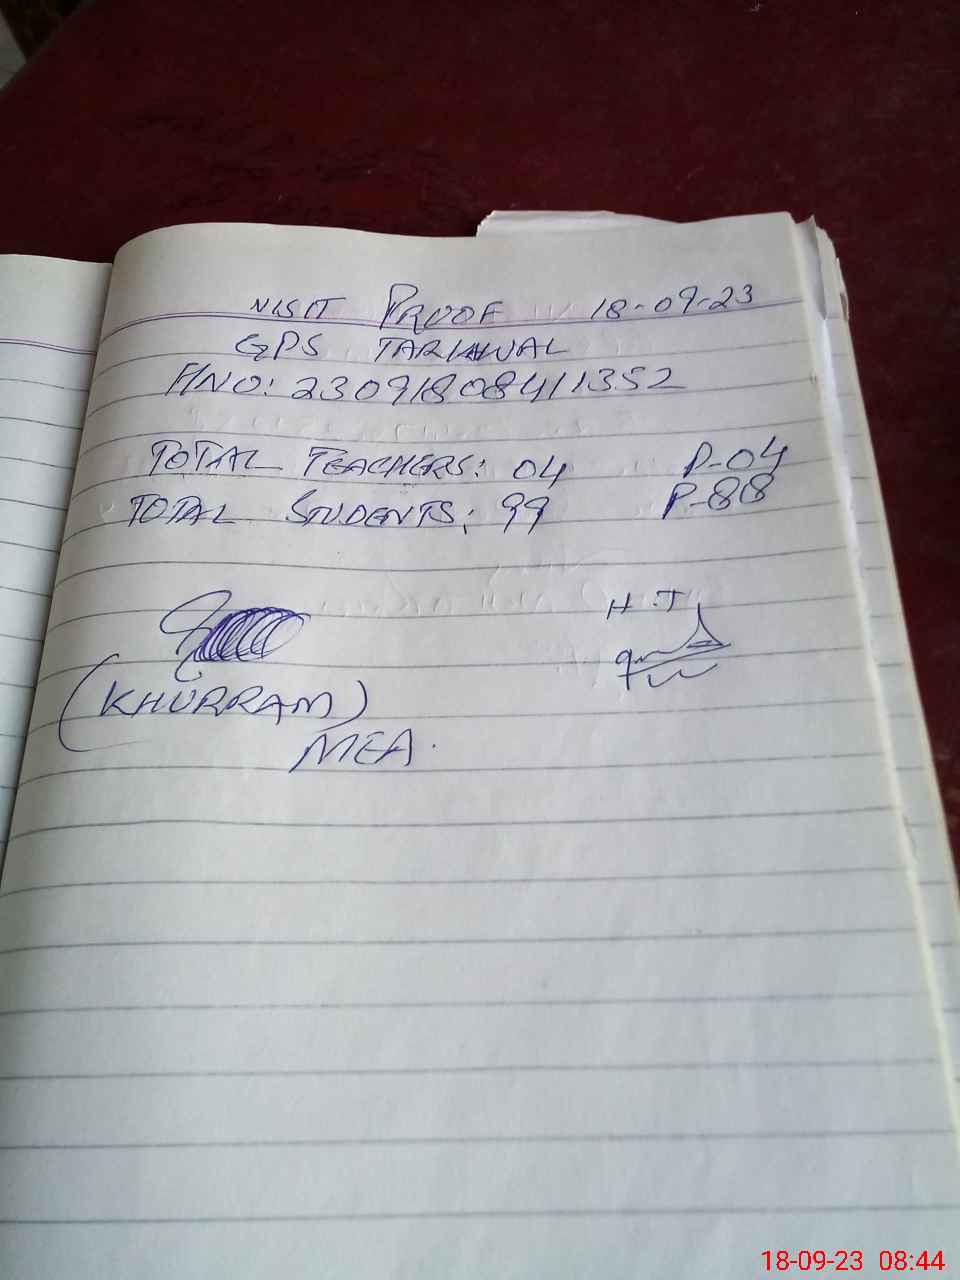 VISIT PROOF 18-09-23
GPS TARKHWAL
F/NO: 23091808411352
TOTAL TEACHERS: 04 P-04
TOTAL STUDENTS: 99 P-88
H.T
(KHURRAM)
MEA.
18-09-23 08:44